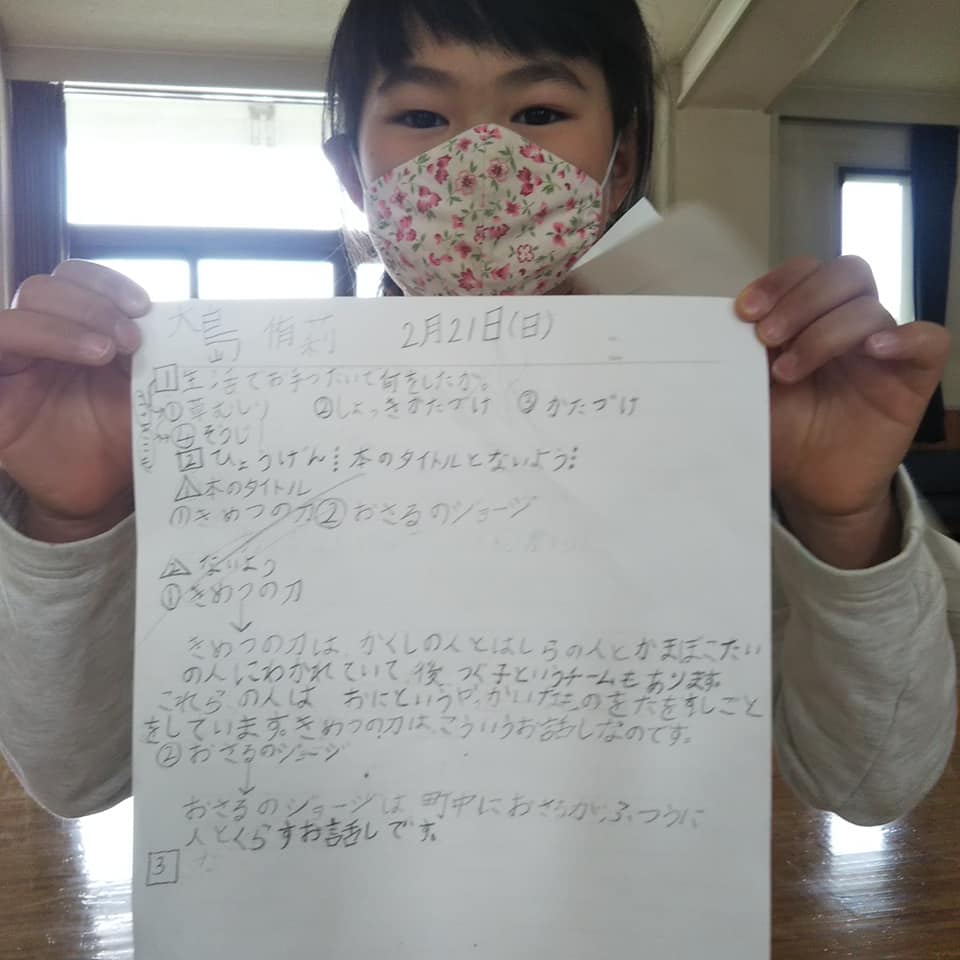 大島 侑莉 2月21日(日)
1 生活でお手つだいで何をしたか。
①草むしり ②しょっきかたづけ ③かたづけ
④そうじ
2 ひょうげん⋮本のタイトルとないよう⋮
1 本のタイトル
①きめつの刀②おさるのジョージ
2 ないよう
①きめつの刀
↓
きめつの刀は、かくしの人とはしらの人とかまぼこたい
の人にわかれていて、後、つぐ子というチームもあります。
これらの人は おにというやつ
をしています。きめつの刀は、こういうお話しなのです。
②おさるのジョージ
↓
おさるのジョージは、町中におさるが、ふつうに
人とくらすお話しです。
3